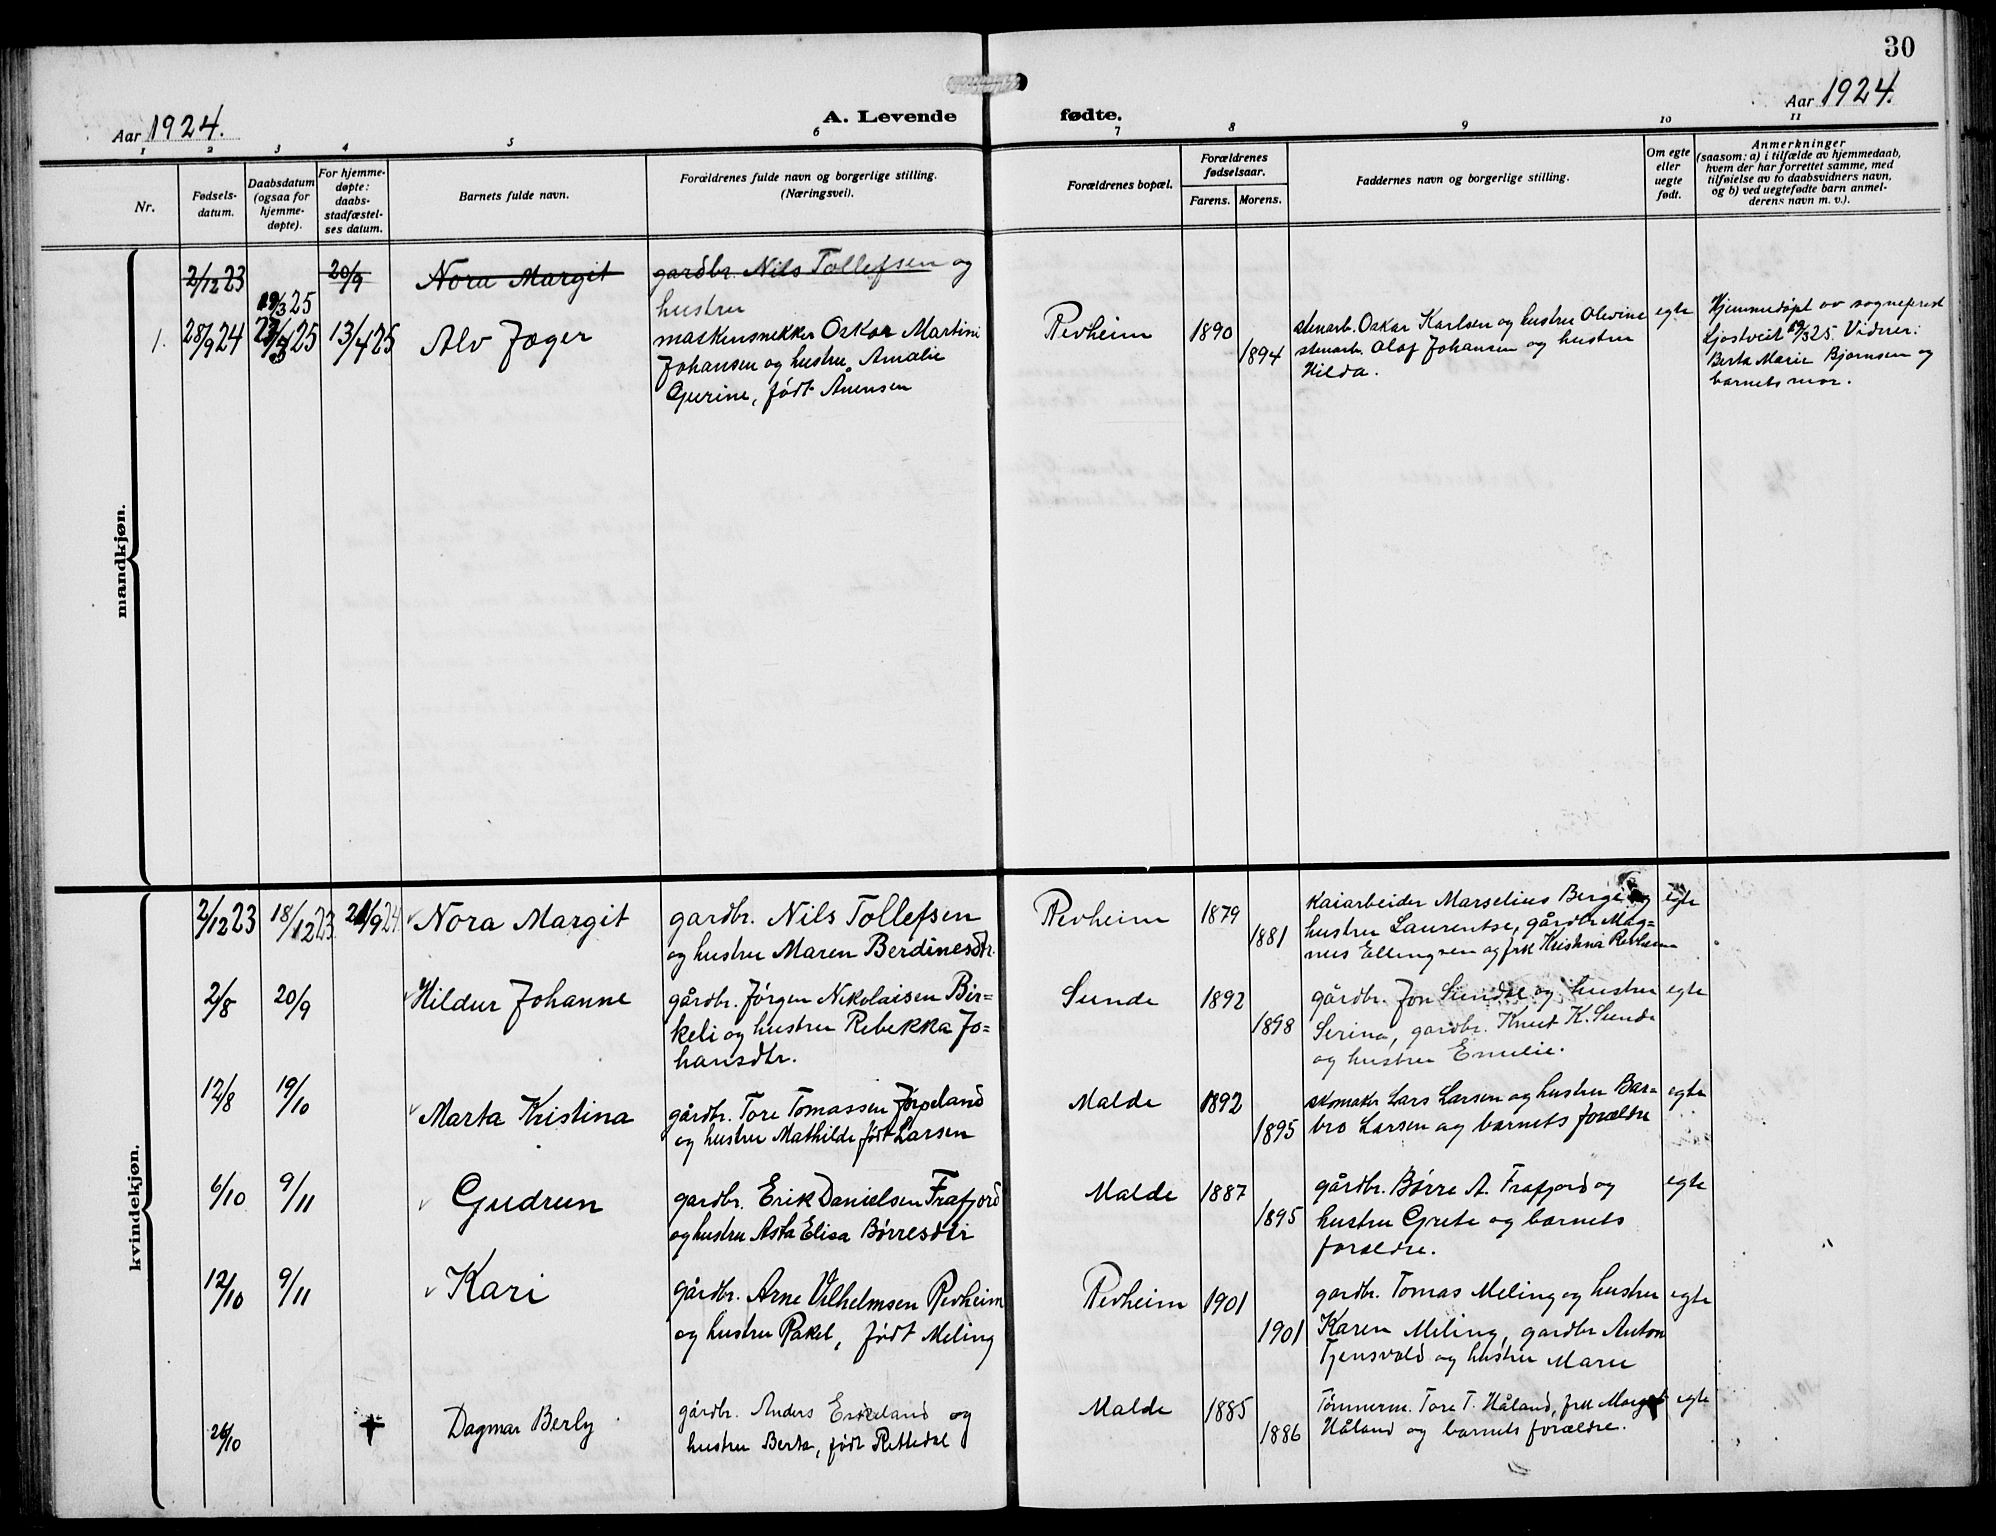 30
Aar 1924. A. Levende fødte. Aar 1924.
1 2 3 4 5 6 7 8 9 10 11
Nr.
Fødsels-
datum.
Daabsdatum
(ogsaa for
hjemme-
døpte).
For hjemme-
døpte:
daabs-
stadfæstel-
ses datum.
Barnets fulde navn.
Forældrenes fulde navn og borgerlige stilling.
(Næringsvei).
Forældrenes bopæl.
Forældrenes
fødselsaar.
Farens. Morens.
Faddernes navn og borgerlige stilling.
Om egte
eller
uegte
født.
Anmerkninger
(saasom: a) i tilfælde av hjemmedaab,
hvem der har forrettet samme, med
tilføielse av to daabsvidners navn,
og b) ved uegtefødte barn anmel-
derens navn m. v.).
mandkjøn.
2/12 23 20/9 Nora Margit gardbr. Nils Tollefsen og
hustru
1. 28/9 24 19/3 25 13/4 25 Alv Jæger
maskinsnekker Oskar Martin
Johansen og hustru Amalie
Gurine, født Ånensen
Revheim 1890 1894
stenarb. Oskar Karlsen og hustru Olevine
stenarb. Olaf Johansen og hustru
Hilda.
egte
Hjemmedøpt av sogneprest
Ljostveit 19/3 25. Vidner:
Berta Marie Bjørnsen og
barnets mor.
kvindekjøn.
2/12 23 18/12 23 21/9 24 Nora Margit
gardbr. Nils Tollefsen
og hustru Maren Berdinesdtr.
Revheim 1879 1881
Kaiarbeider Marselius Berge og
hustru Laurentse, gårdbr. Mag-
nus Ellingsen og frk Kristina Revheim
egte
2/8 20/9 Hildur Johanne
gårdbr. Jørgen Nikolaisen Bir-
keli og hustru Rebekka Jo-
hansdtr.
Sunde 1892 1898
gårdbr. Jon Sunde og hustru
Serina, gardbr. Knut K. Sunde
og hustru Emilie.
egte
12/8 19/10 Marta Kristina
gårdbr. Tore Tomassen Jørpeland
og hustru Mathilde født Larsen
Malde 1892 1895
skomaker Lars Larsen og hustru Bar-
bro Larsen og barnets forældre
egte
6/10 9/11 Gudrun
gardbr. Erik Danielsen Frafjord
og hustru Asta Elisa Børresdtr
Malde 1887 1895
gårdbr. Børre A. Frafjord og
hustru Grete og barnets
forældre.
egte
12/10 9/11 Kari
gårdbr. Arne Vilhelmsen Revheim
og hustru Rakel, født Meling
Revheim 1901 1901
gardbr. Tomas Meling og hustru
Karen Meling, gardbr Anton
Tjensvold og hustru Marie
egte
26/10 Dagmar Berly
gårdbr. Anders Eskeland og
hustru Berta, født Rettedal
Malde 1885 1886
Tømmerm. Tore T. Håland, frk Margit
Håland og barnets forældre.
egte